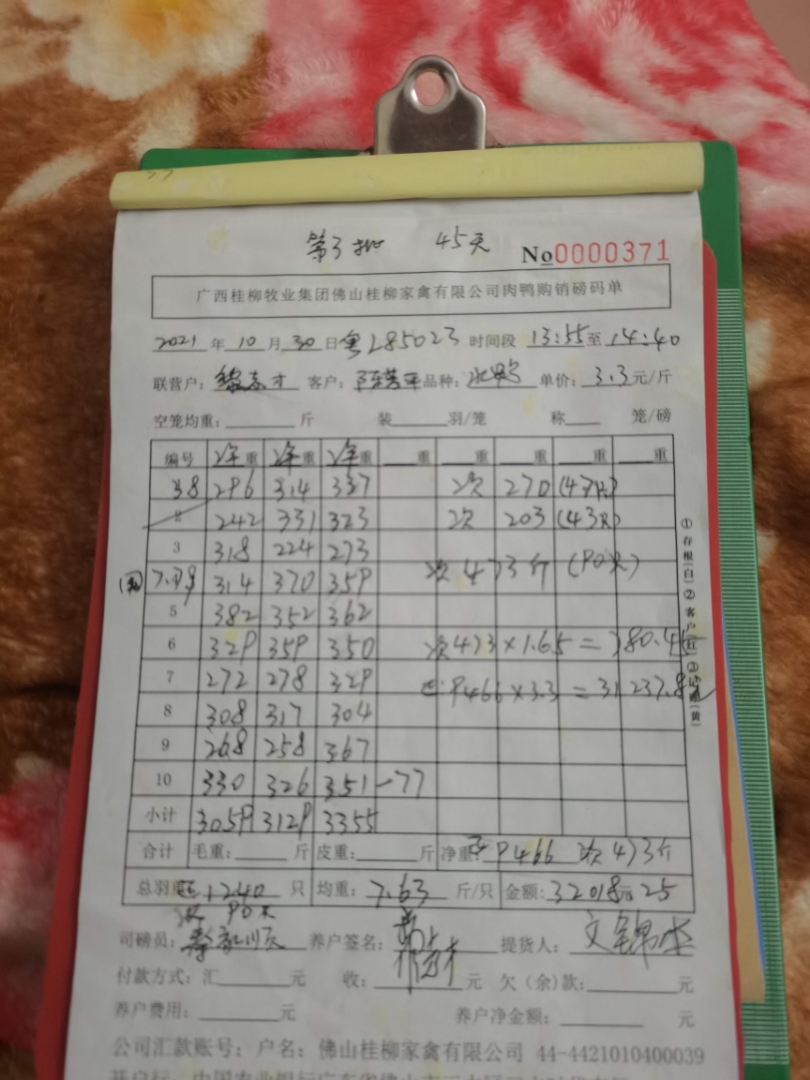 第3批 45天 No0000371
广西桂柳牧业集团佛山桂柳家禽有限公司肉鸭购销磅码单
2021年10月30日 粤L85023 时间段 13:55至14:40
联营户: 客户: 品种: 水鸭 单价: 3.3元/斤
空笼均重: 斤 装 羽/笼 称 笼/磅
编号 净重 净重 净重 重 重 重 重
38 296 314 337 次 270 (47只)
2 242 331 323 次 203 (43只)
3 318 224 273
次 473斤 (90只)
7.78 314 370 359
5 382 352 362
6 329 359 350 次473×1.65=780.45
7 272 278 329 正9466×3.3=31237.8
8 308 317 304
9 268 258 367
10 330 326 351-77
小计 3059 3129 3355
合计 毛重: 斤 皮重: 斤 净重: 正9466 次473斤
总羽 正1240 只 均重: 7.63 斤/只 金额: 32018元25
次 90只
司磅员: 养户签名: 提货人:
付款方式: 汇 元 收: 元 欠(余)款: 元
养户费用: 元 养户净金额: 元
公司汇款账号: 户名: 佛山桂柳家禽有限公司 44-4421010400039
①存根(白)②客户(红)③ (黄)